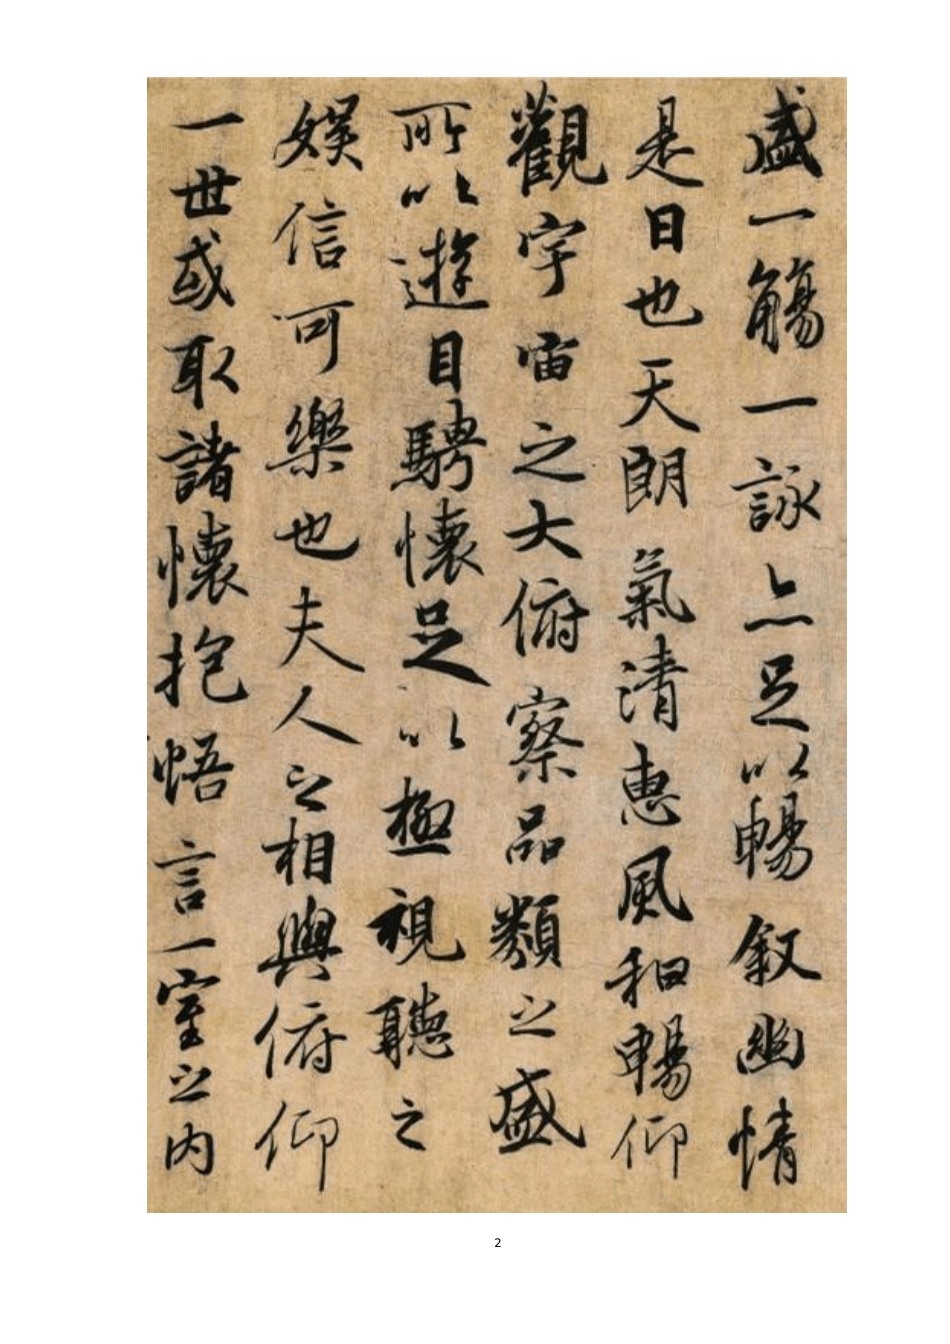 盛一觴一詠亦足以暢叙幽情
是日也天朗氣清惠風和暢仰
觀宇宙之大俯察品類之盛
所以遊目騁懷足以極視聽之
娛信可樂也夫人之相與俯仰
一世或取諸懷抱悟言一室之內
2